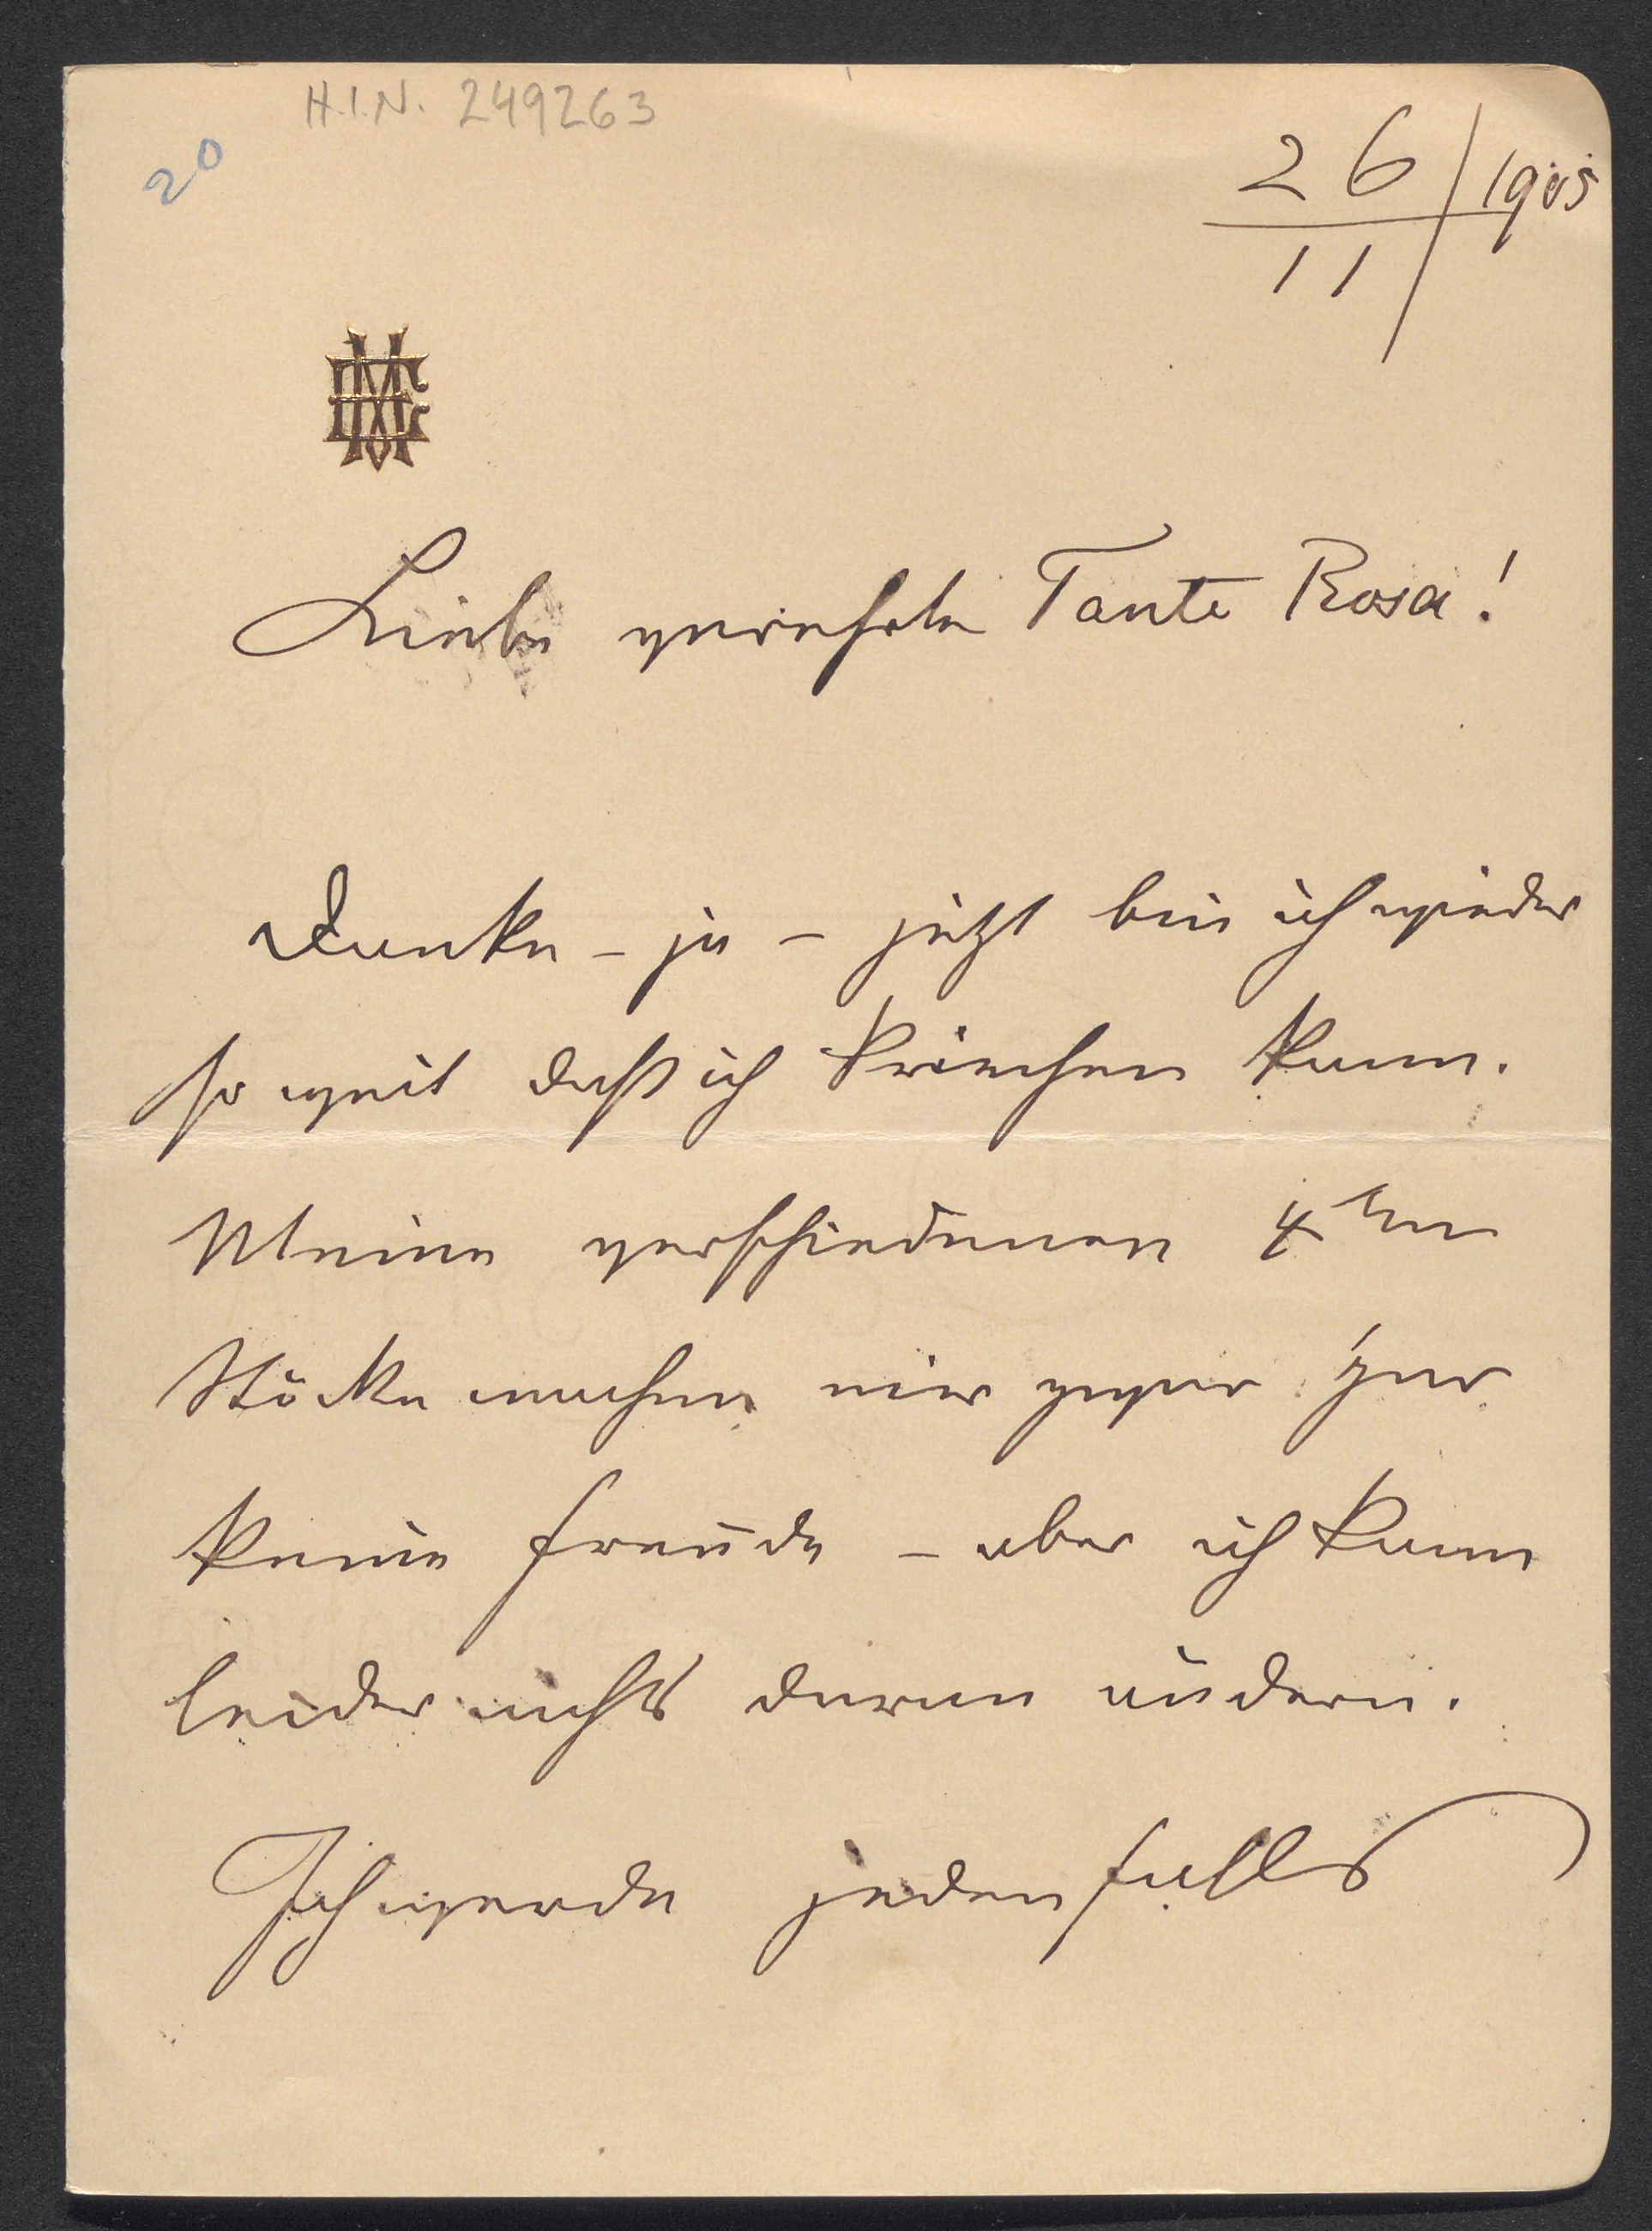 H.I.N. 249263
20
26/11 1905
Liebe verehrte Tante Rosa!
Danke – ja – jetzt bin ich wieder
so weit daß ich kriechen kann.
Meine verschiedenen 4ten
Stöcke machen mir zwar gar
keine Freude – aber ich kann
leider nichts daran ändern.
Ich werde jedenfalls